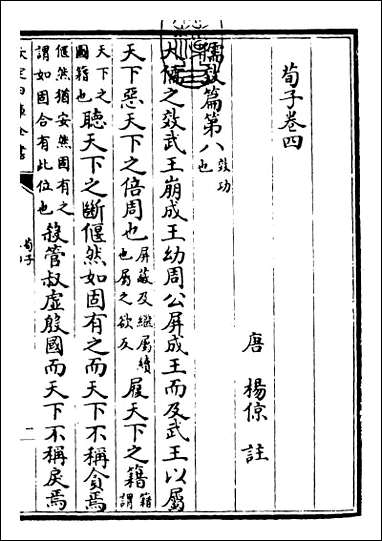 荀子卷四
唐 楊倞 註
儒效篇第八效功也
大儒之效武王崩成王幼周公屏成王而及武王以屬
天下惡天下之倍周也屏蔽及繼屬續也屬之欲反履天下之籍籍謂
天下之圖籍也聽天下之斷偃然如固有之而天下不稱貪焉
偃然猶安然固有之謂如固合有此位也殺管叔虛殷國而天下不稱戾焉
荀子